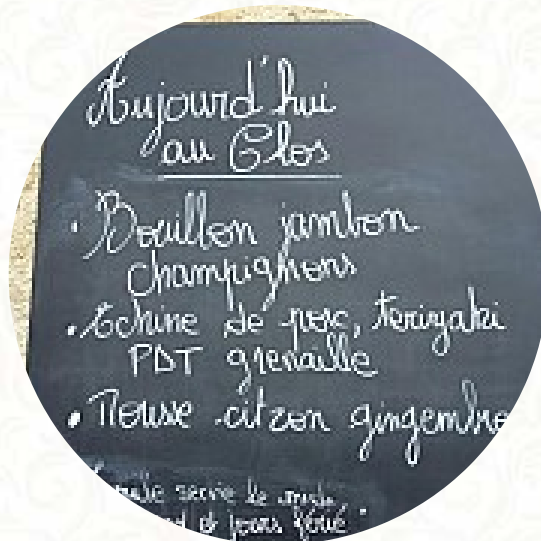 Aujourd'hui
au Clos
• Bouillon jambon
champignons
• Echine de porc, teriyaki
PDT grenaille
• Mousse citron gingembre
servie le midi
jours férié